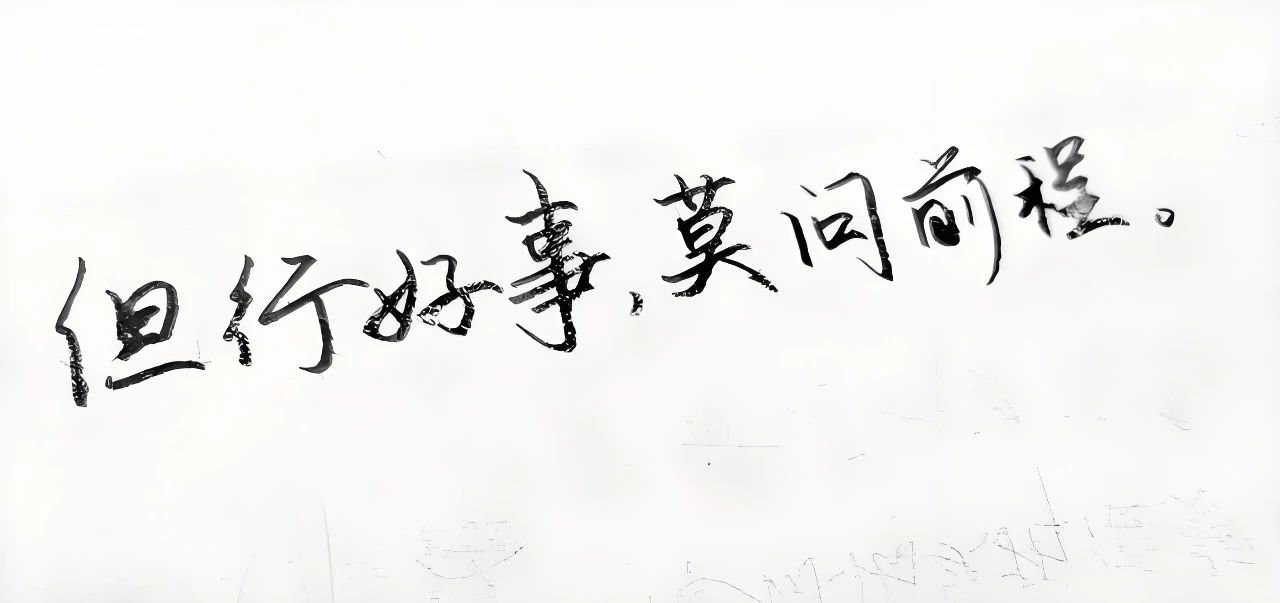 但行好事,莫问前程。